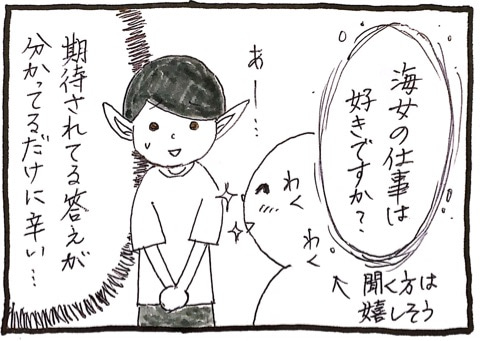 海女の仕事は
好きですか?
わく
わく
↑聞く方は
嬉しそう
あー…
期待されてる答えが
分かってるだけに辛い…